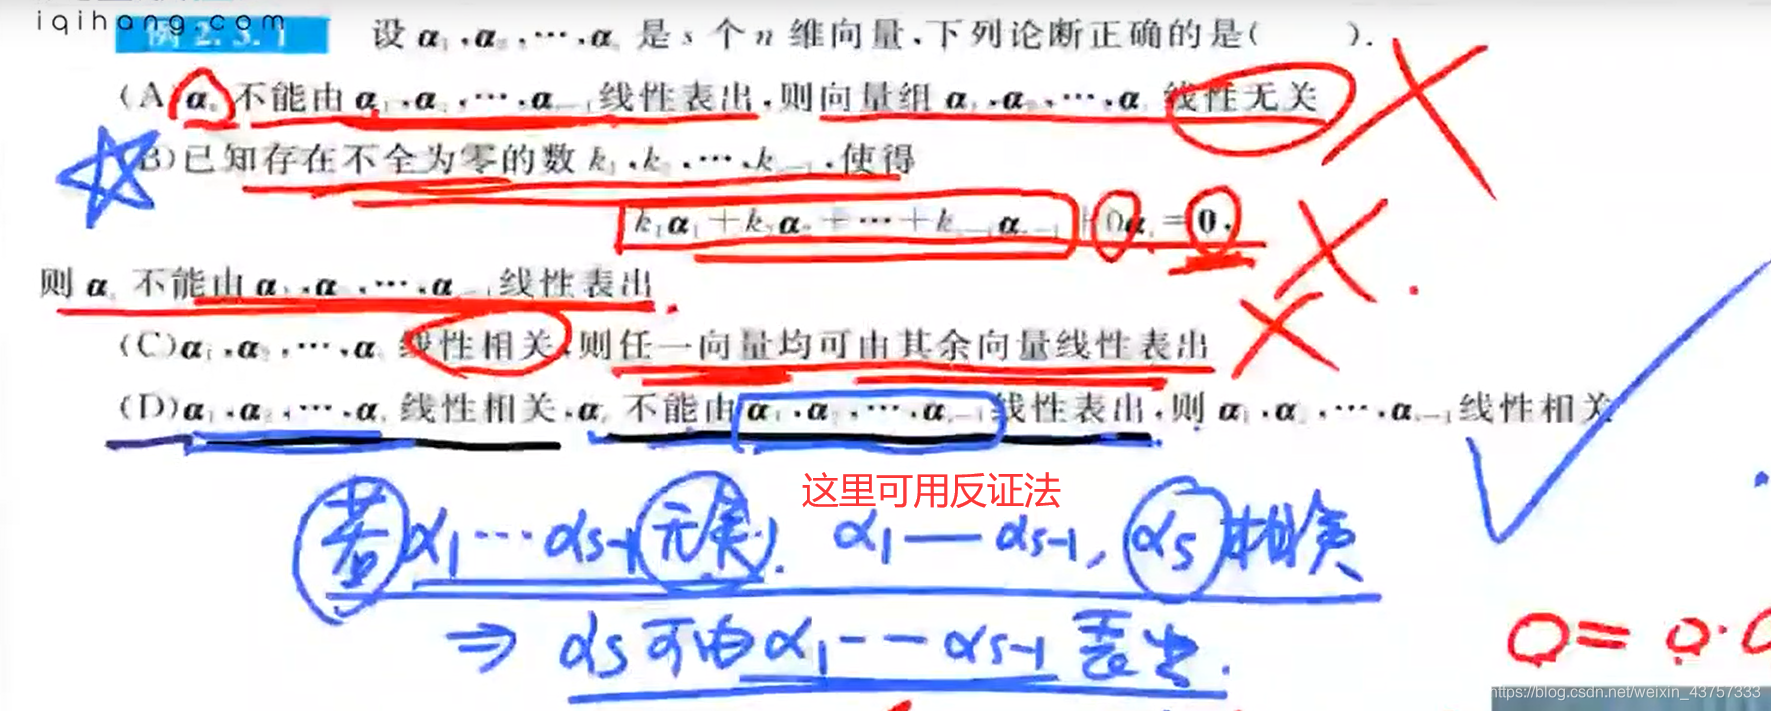 iqihang.com
例 2.3.1 设 α₁,α₂,…,αₛ 是 s 个 n 维向量,下列论断正确的是( ).
(A)αₛ 不能由 α₁,α₂,…,αₛ₋₁ 线性表出,则向量组 α₁,α₂,…,αₛ 线性无关
(B)已知存在不全为零的数 k₁,k₂,…,kₛ₋₁,使得
k₁α₁+k₂α₂+…+kₛ₋₁αₛ₋₁+0αₛ=0,
则 αₛ 不能由 α₁,α₂,…,αₛ₋₁ 线性表出
(C)α₁,α₂,…,αₛ 线性相关,则任一向量均可由其余向量线性表出
(D)α₁,α₂,…,αₛ 线性相关,αₛ 不能由 α₁,α₂,…,αₛ₋₁ 线性表出,则 α₁,α₂,…,αₛ₋₁ 线性相关
这里可用反证法
若 α₁…αs-1 无关. α₁—αs-1, αs 相关
⇒ αs 可由 α₁--αs-1 表出.
0=0·0
https://blog.csdn.net/weixin_43757333